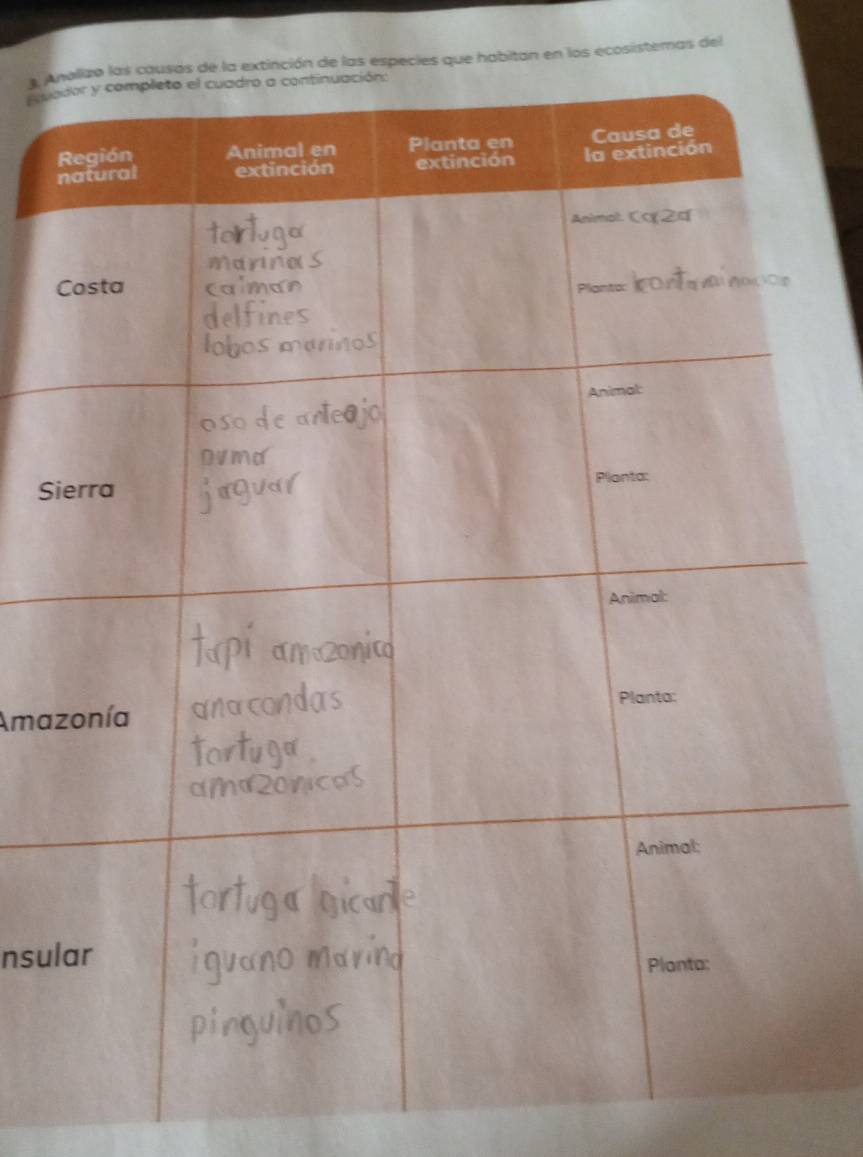 3. Analizo las causas de la extinción de las especies que habitan en los ecosistemas del
Ecuador y completo el cuadro a continuación:
Región natural
Animal en extinción
Planta en extinción
Causa de la extinción
Costa
tortuga
marinas
caiman
delfines
lobos marinos
Animal: caza
Planta: contaminacion
Sierra
oso de anteojo
puma
jaguar
Animal:
Planta:
Amazonía
tapi amazonico
anacondas
tortuga
amazonicas
Animal:
Planta:
nsular
tortuga gicante
iguano marino
pinguinos
Animal:
Planta: